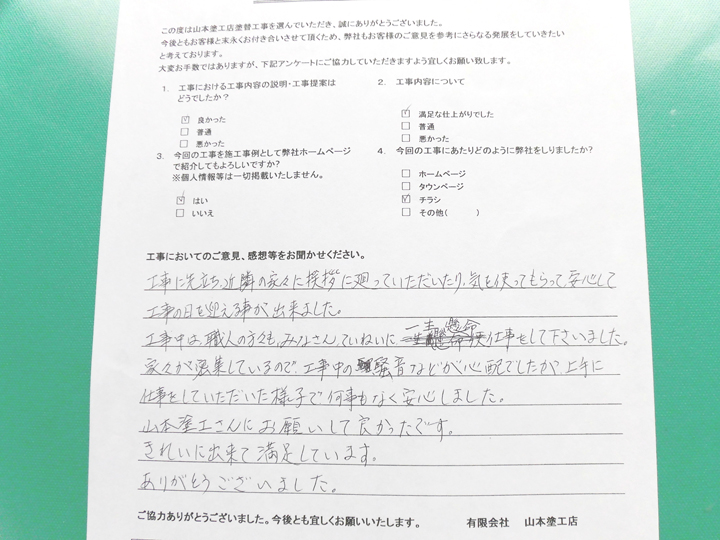 この度は山本塗工店塗替工事を選んでいただき、誠にありがとうございました。
今後ともお客様と末永くお付き合いさせて頂くため、弊社もお客様のご意見を参考にさらなる発展をしていきたい
と考えております。
大変お手数ではありますが、下記アンケートにご協力していただきますよう宜しくお願い致します。
1. 工事における工事内容の説明・工事提案は
どうでしたか?
☑ 良かった
□ 普通
□ 悪かった
2. 工事内容について
☑ 満足な仕上がりでした
□ 普通
□ 悪かった
3. 今回の工事を施工事例として弊社ホームページ
で紹介してもよろしいですか?
※個人情報等は一切掲載いたしません。
☑ はい
□ いいえ
4. 今回の工事にあたりどのように弊社をしりましたか?
□ ホームページ
□ タウンページ
☑ チラシ
□ その他( )
工事においてのご意見、感想等をお聞かせください。
工事に先立ち、近隣の家々に挨拶に廻っていただいたり、気を使ってもらって、安心して
工事の日を迎える事が出来ました。
工事中は、職人の方々も、みなさん、ていねいに一生懸命仕事をして下さいました。
家々が密集しているので、工事中の騒音などが心配でしたが、上手に
仕事をしていただいた様子で何事もなく安心しました。
山本塗工さんにお願いして良かったです。
きれいに出来て満足しています。
ありがとうございました。
ご協力ありがとうございました。今後とも宜しくお願いいたします。 有限会社 山本塗工店